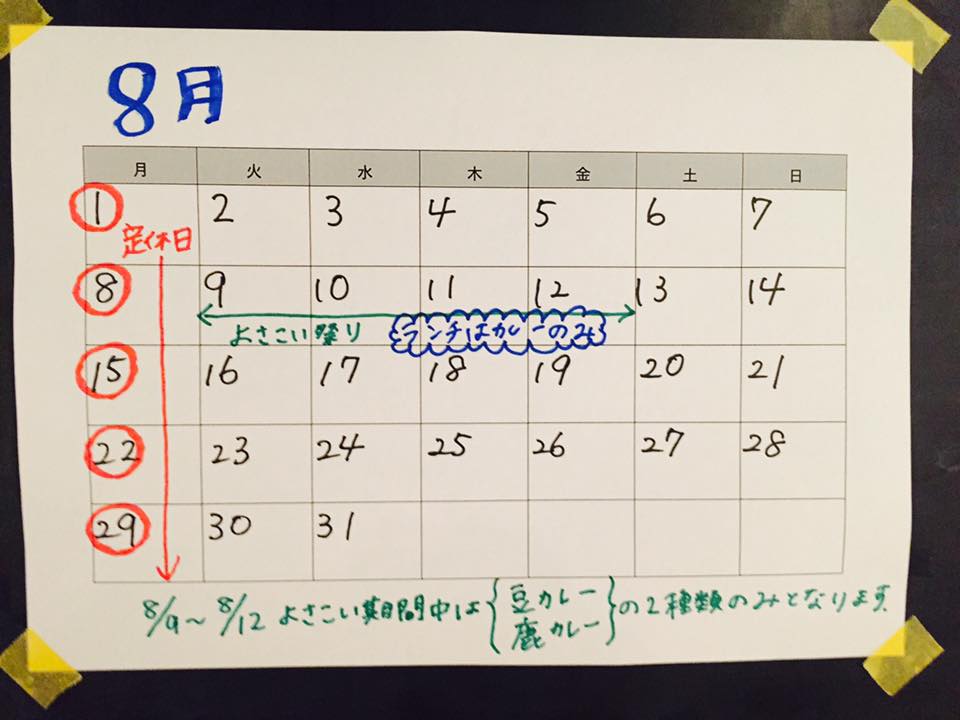 8月
月 火 水 木 金 土 日
1 2 3 4 5 6 7
定休日
8 9 10 11 12 13 14
よさこい祭り ランチはカレーのみ
15 16 17 18 19 20 21
22 23 24 25 26 27 28
29 30 31
8/9〜8/12 よさこい期間中は{豆カレー
鹿カレー}の2種類のみとなります